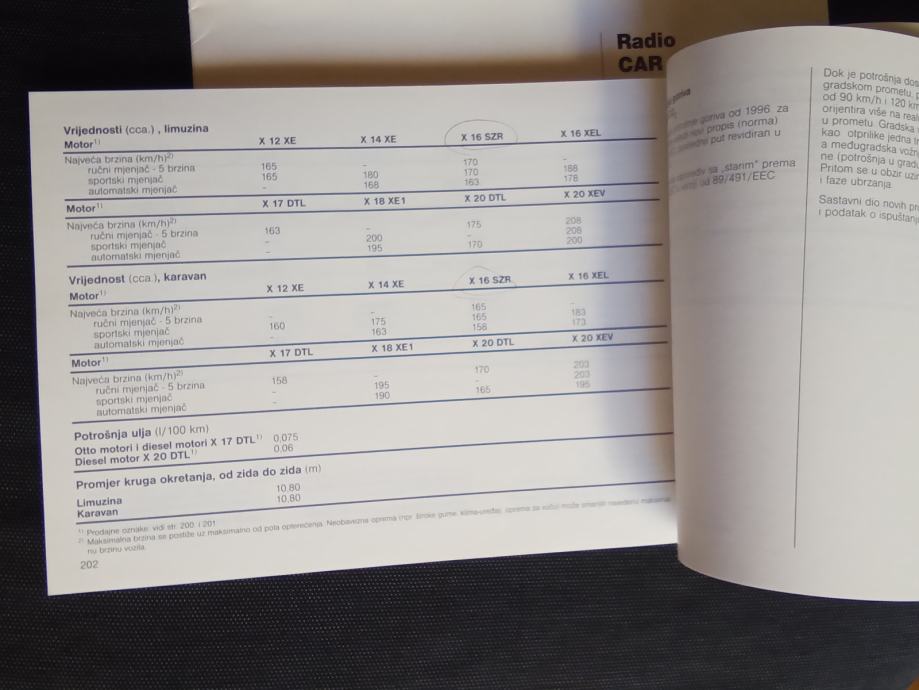 Radio
CAR
Vrijednosti (cca.) , limuzina
Motor1) X 12 XE X 14 XE X 16 SZR X 16 XEL
Najveća brzina (km/h)2)
ručni mjenjač - 5 brzina 165 - 170 -
sportski mjenjač 165 180 170 188
automatski mjenjač - 168 163 178
Motor1) X 17 DTL X 18 XE1 X 20 DTL X 20 XEV
Najveća brzina (km/h)2)
ručni mjenjač - 5 brzina 163 - 175 208
sportski mjenjač - 200 - 208
automatski mjenjač - 195 170 200
Vrijednost (cca.), karavan
Motor1) X 12 XE X 14 XE X 16 SZR X 16 XEL
Najveća brzina (km/h)2)
ručni mjenjač - 5 brzina - - 165 -
sportski mjenjač 160 175 165 183
automatski mjenjač - 163 158 173
Motor1) X 17 DTL X 18 XE1 X 20 DTL X 20 XEV
Najveća brzina (km/h)2)
ručni mjenjač - 5 brzina 158 - 170 203
sportski mjenjač - 195 - 203
automatski mjenjač - 190 165 195
Potrošnja ulja (l/100 km)
Otto motori i diesel motori X 17 DTL1) 0,075
Diesel motor X 20 DTL1) 0,06
Promjer kruga okretanja, od zida do zida (m)
Limuzina 10,80
Karavan 10,80
1) Prodajne oznake: vidi str. 200. i 201.
2) Maksimalna brzina se postiže uz maksimalno od pola opterećenja. Neobavezna oprema (npr. široke gume, klima-uređaj, oprema za vuču) može smanjiti navedenu maksimal
nu brzinu vozila.
202
goriva
goriva od 1996. za
propis (norma)
put revidiran u
sa „starim" prema
od 89/491/EEC
Dok je potrošnja dos
gradskom prometu, p
od 90 km/h i 120 km
orijentira više na real
u prometu. Gradska
kao otprilike jedna tr
a međugradska vožn
ne (potrošnja u grad
Pritom se u obzir uzim
i faze ubrzanja.
Sastavni dio novih pr
i podatak o ispuštanj